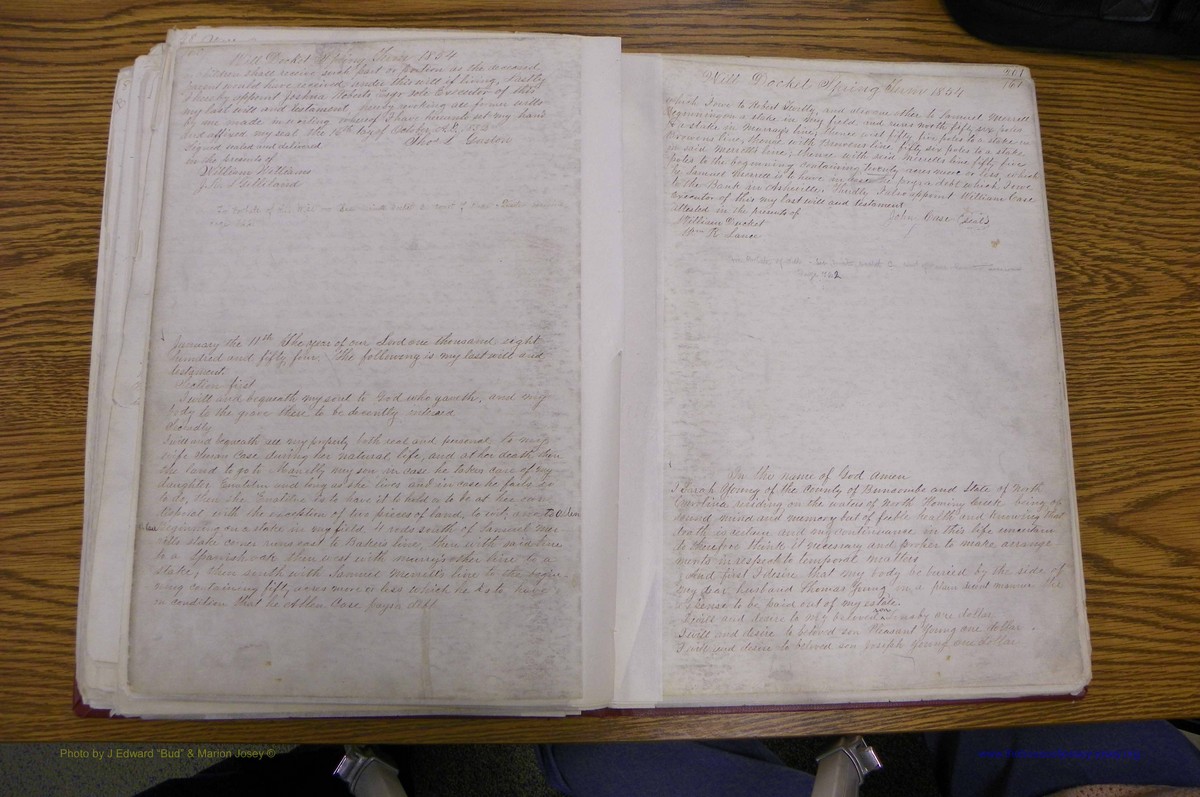 Will Docket Spring Term 1854
children shall receive such part or portion as the deceased
parent would have received under this will if living, Lastly
I hereby appoint Joshua Roberts Esqr sole Executor of this
my last will and testament hereby revoking all former wills
by me made in writing whereof I have hereunto set my hand
and affixed my seal this 16th day of October
Signed sealed and delivered
in the presents of
Thos L Gaston
William Williams
John S Gilliland
January the 11th The year of our Lord one thousand eight
hundred and fifty four. The following is my last will and
testyment.
Section first
I will and bequeath my soul to God who gaveth, and my
body to the grave there to be decently intered
Secondly
I will and bequeath all my property both real and personal to my
wife Susan Case during her natural life, and at her death
land to go to my son in case he takes care of my
daughter Emiline as long as she lives and in case he fails so
to do, then she Emiline is to have it to hold or to be at her own
disposal with the exception of two pieces of land, to wit, one to Allen
Case
beginning on a stake in my field rods south of Samuel
stake corner runs east to Bakers line, then with said line
to a Spanish oak then west with line to a
stake, then south with Samuel Merrells line to the begin-
ning containing fifty acres more or less which he is to have
on condition that he Allen Case pays a debt
Will Docket Spring Term 1854
301
which I owe to Robert and also one other to Samuel Merrell
Beginning on a stake in my field and runs north fifty six poles
to a stake in Murrays line, thence west fifty five poles to a stake in
line, thence with line fifty six poles to a stake
in said Merrells line, thence with said Merrells line fifty five
poles to the beginning containing twenty acres more or less, which
he Samuel Merrell is to have in case he pays a debt which I owe
to the Bank in Asheville. Thirdly I also appoint William Case
executor of this my last will and testament
attested in the presents of
John Case (Seal)
William
Wm R. Lance
Page 262
In the name of God Amen
I Sarah Young of the County of Buncombe and State of North
Carolina residing on the waters of North Hominy Creek being of
sound mind and memory but of feeble health and knowing that
death is certain and my continuance in this life uncertain
to therefore think it necessary and proper to make arrange
ments in respect to temporal matters
And first I desire that my body be buried by the side of
my dear husband Thomas Young in a plain decent manner the
expense to be paid out of my estate.
I will and desire to my beloved son one dollar
I will and desire to beloved son Pleasant Young one dollar
I will and desire to beloved son Joseph Young one dollar
Photo by J Edward "Bud" & Marion Josey ©